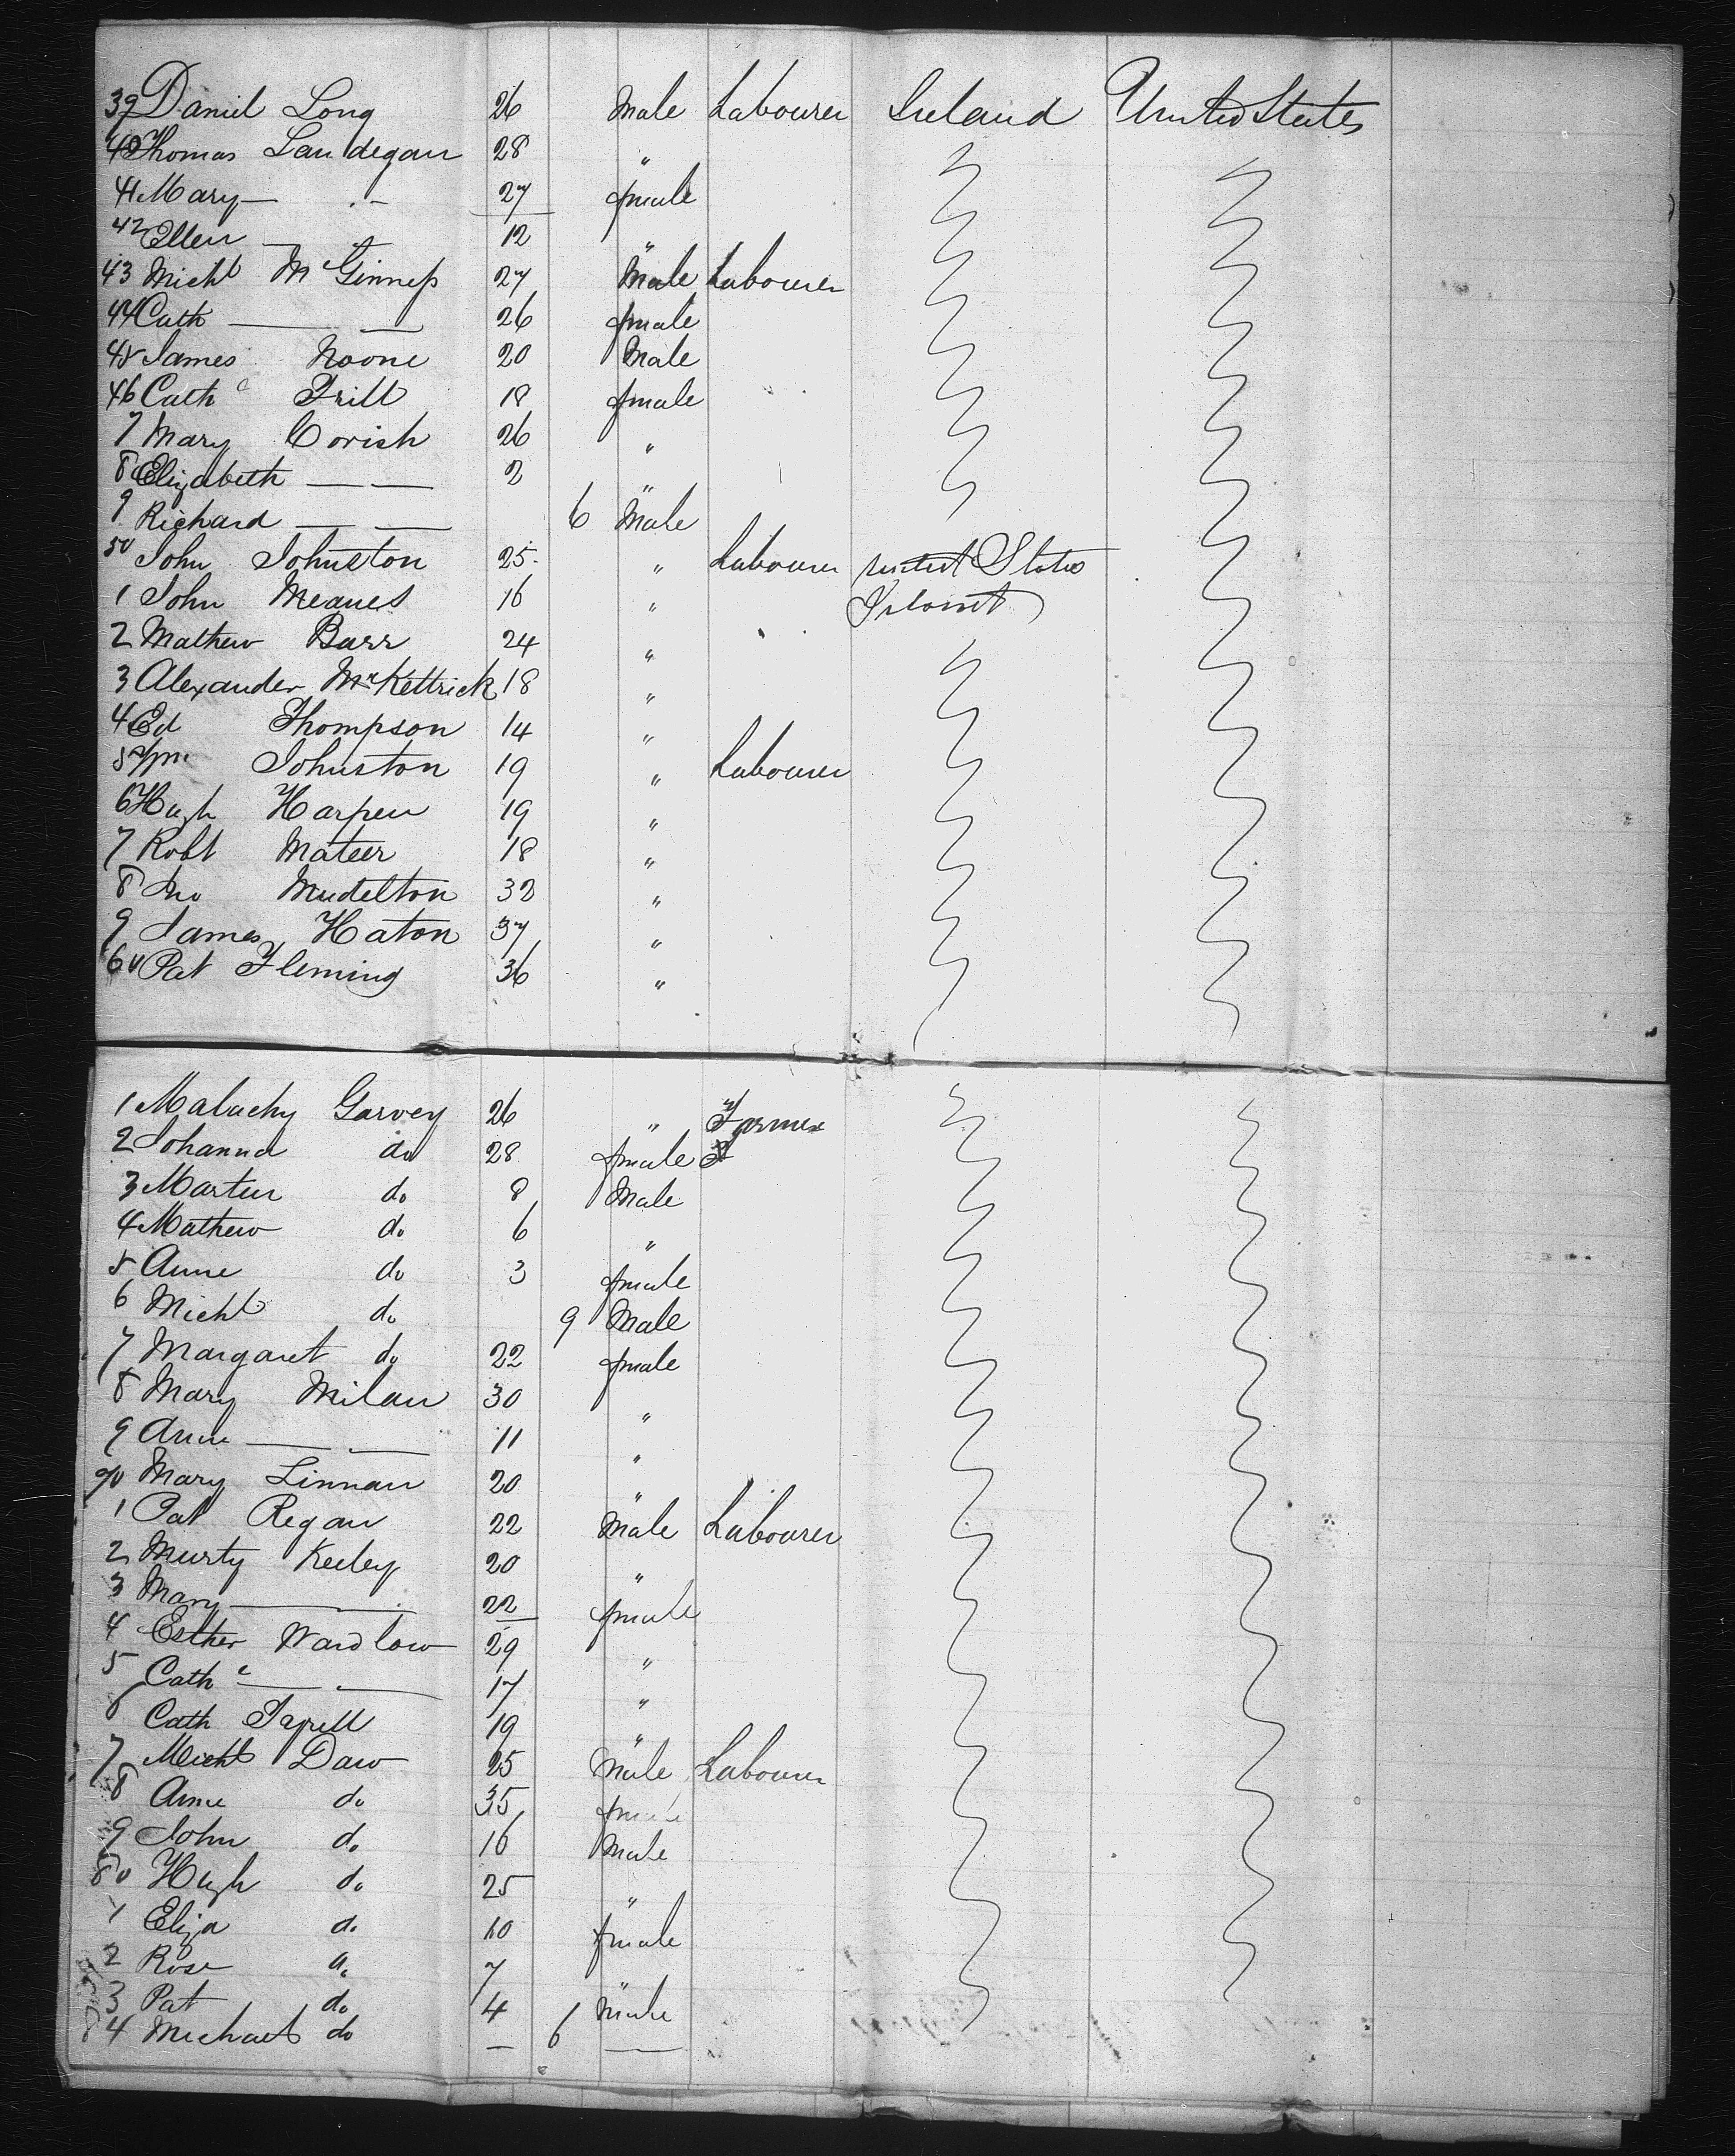 39 Daniel Long 26 Male Labourer Ireland United States
40 Thomas Landegan 28 "
41 Mary — .- 27 female
42 Ellen — - 12 "
43 Michl McGinness 27 Male Labourer
44 Cath — — 26 female
45 James Noone 20 Male
46 Cathe Frill 18 female
7 Mary Corish 26 "
8 Elizabeth — — 2 "
9 Richard — — 6 Male
50 John Johnston 25 " Labourer United States
1 John Meanes 16 " Ireland
2 Mathew Barr 24 "
3 Alexander McKettrick 18 "
4 Ed Thompson 14 "
5 Wm Johnston 19 " Labourer
6 Hugh Harpen 19 "
7 Robt Mateer 18 "
8 Jno Mudelton 32 "
9 James Haton 37 "
60 Pat Fleming 36 "
1 Malachy Garvey 26 " Farmer
2 Johanna do 28 female
3 Martin do 8 Male
4 Mathew do 6 "
5 Anne do 3 female
6 Michl do 9 Male
7 Margaret do 22 female
8 Mary Milan 30 "
9 Anne — — 11 "
70 Mary Linnan 20 "
1 Pat Regan 22 Male Labourer
2 Murty Keeley 20 "
3 Mary — 22 female
4 Esther Wardlow 29 "
5 Cathe — — 17 "
6 Cath 19 "
7 Michl Daw 25 Male Labourer
8 Anne do 35 female
9 John do 16 Male
80 Hugh do 25 "
1 Eliza do 10 female
2 Rose do 7 "
3 Pat do 4 Male
84 Michael do — 6 —